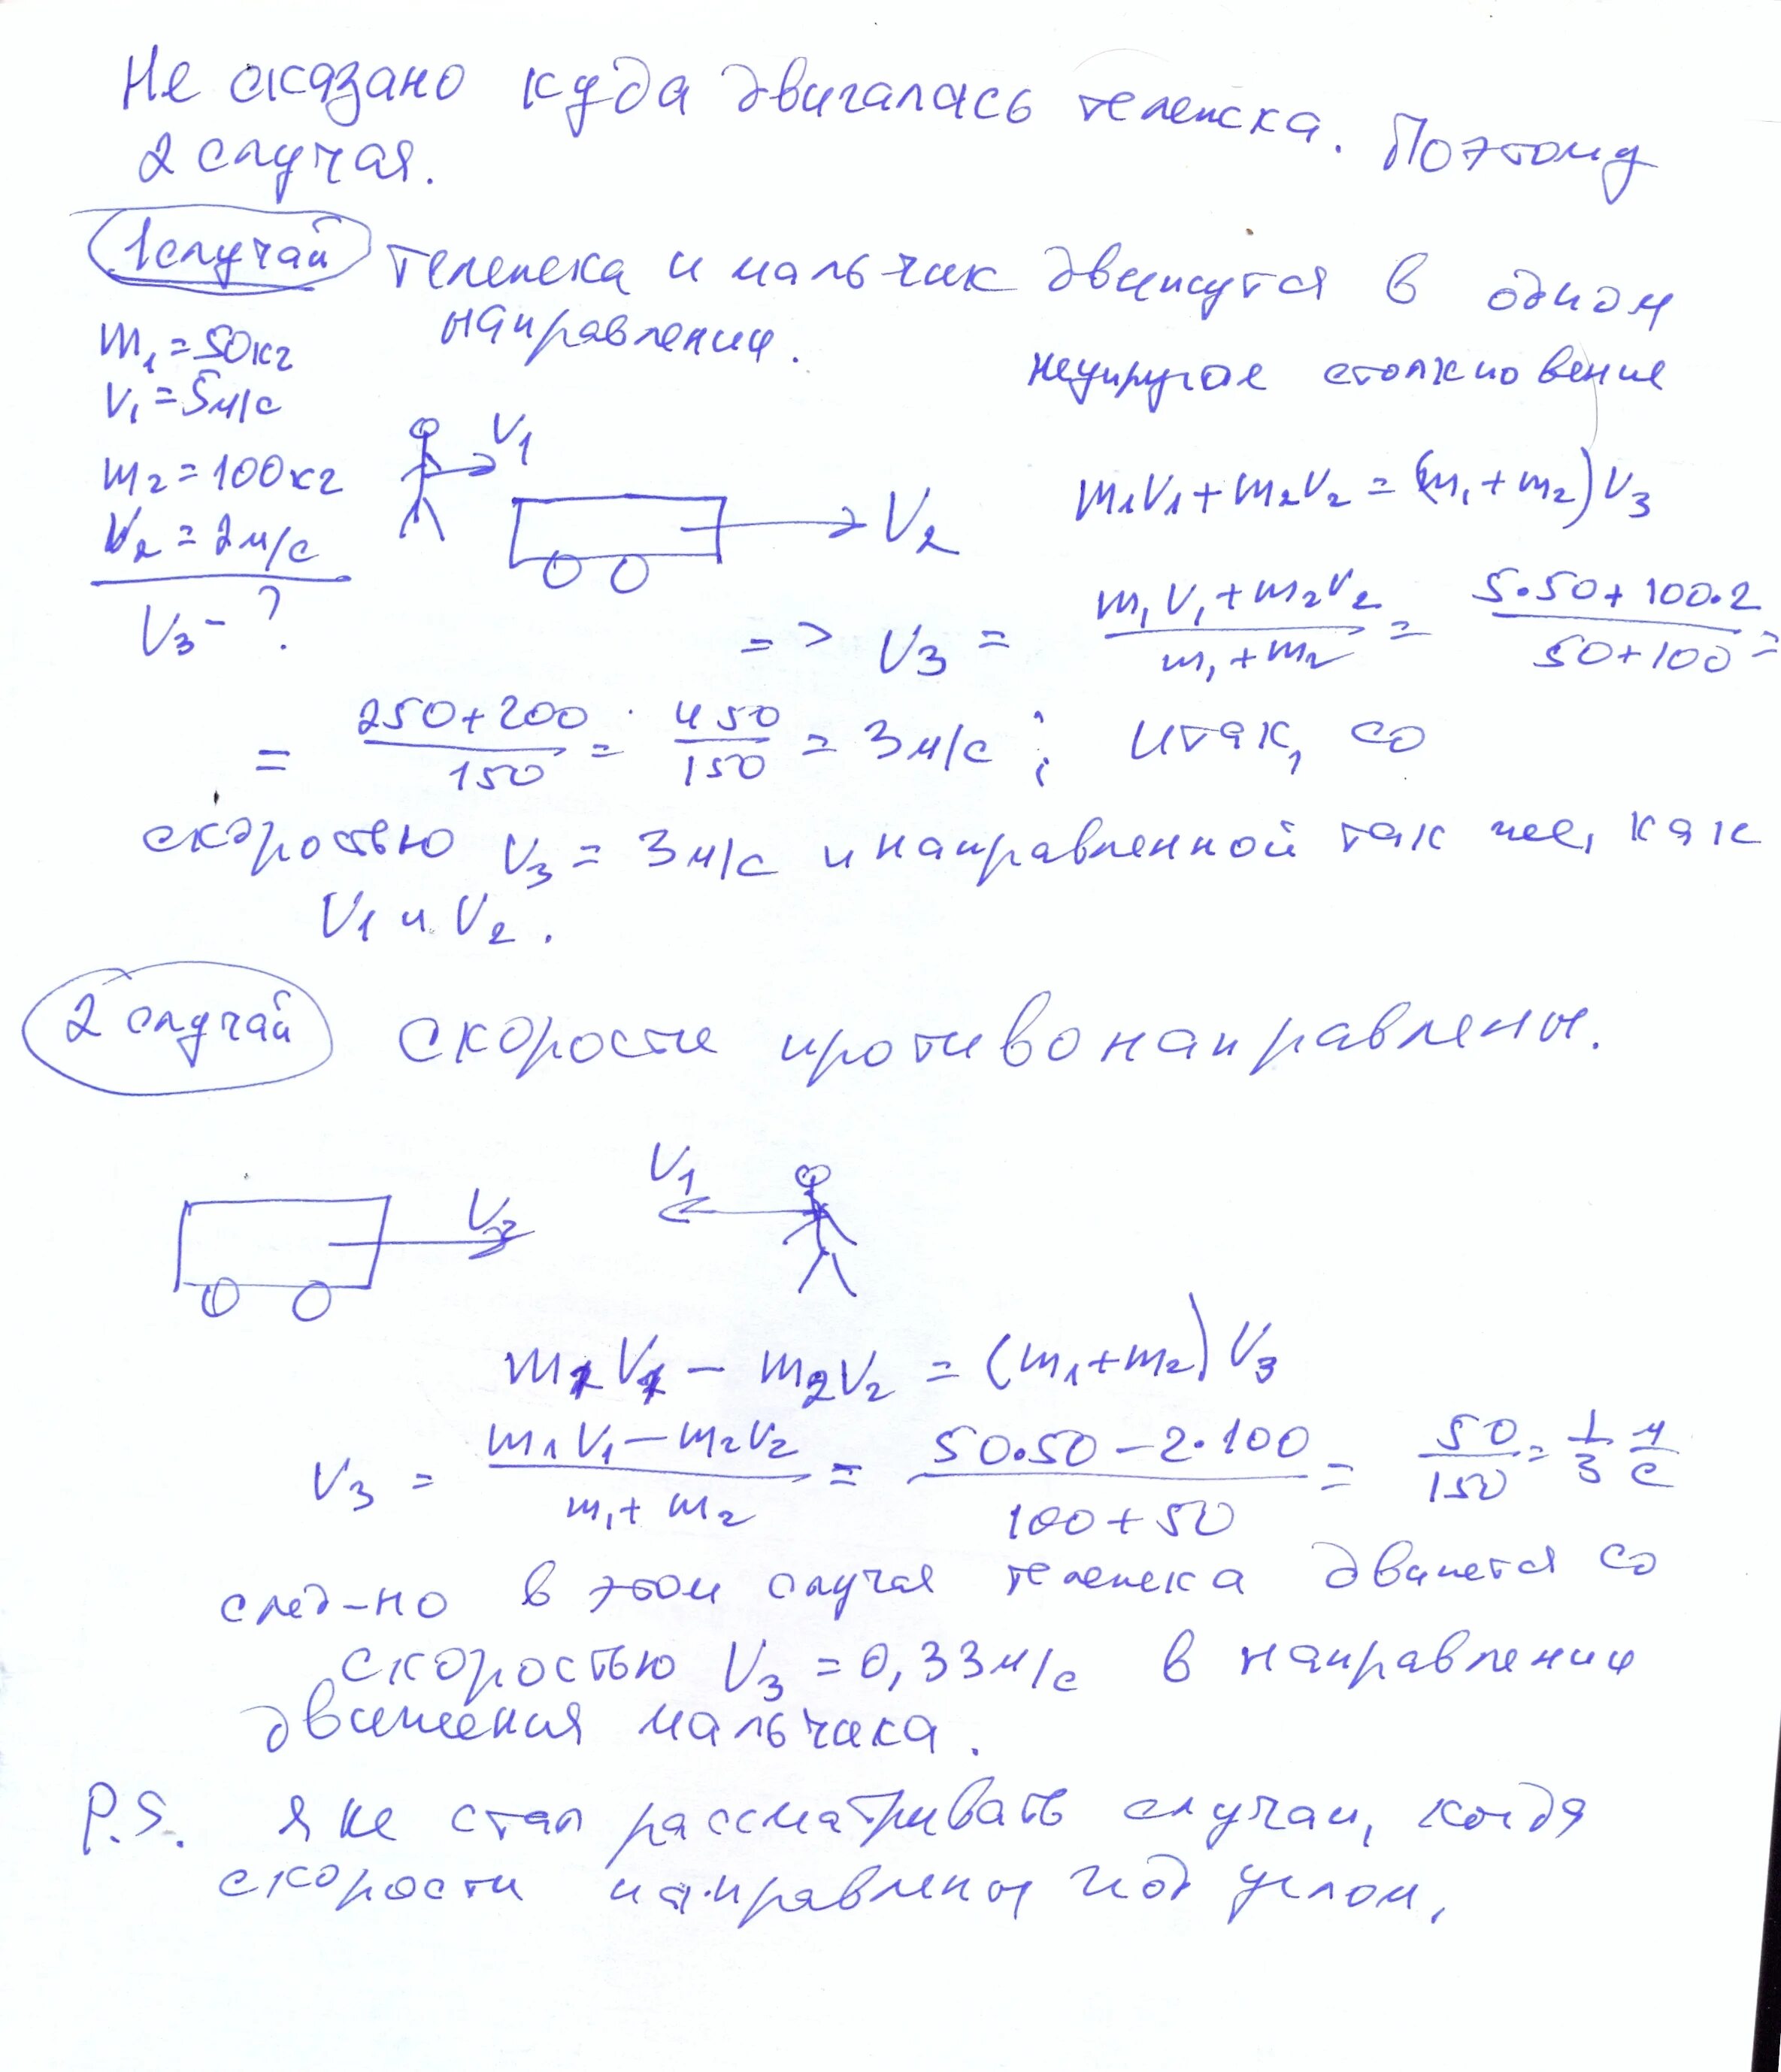 Не сказано куда двигалась тележка. Поэтому
2 случая.
1 случай тележка и мальчик движутся в одном
направлении.
неупругое столкновение
m₁ = 50кг
V₁ = 5м/с
m₂ = 100кг
V₂ = 2м/с
V₃ - ?
V₁
V₂
m₁V₁ + m₂V₂ = (m₁ + m₂) V₃
=> V₃ = (m₁V₁ + m₂V₂)/(m₁ + m₂) = (5·50 + 100·2)/(50 + 100) =
= (250 + 200)/150 = 450/150 = 3м/с ; итак, со
скоростью V₃ = 3м/с и направленной так же, как
V₁ и V₂.
2 случай скорости противонаправлены.
V₂
V₁
m₁V₁ - m₂V₂ = (m₁ + m₂) V₃
V₃ = (m₁V₁ - m₂V₂)/(m₁ + m₂) = (50·50 - 2·100)/(100 + 50) = 50/150 = 1/3 м/с
след-но в этом случая тележка движется со
скоростью V₃ = 0,33м/с в направлении
движения мальчика.
P.S. Я не стал рассматривать случаи, когда
скорости направлены под углом,